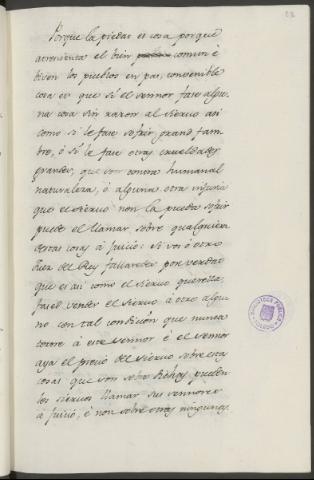 Porque la piedat es cosa porque
acrescienta el bien comun é
biven los pueblos en paz, convenible
cosa es que si el sennor face algu
na cosa sin razon al siervo asi
como si le face sofrir grand fam
bre, ó si le face otras crueldades
grandes, que son contra humanal
naturaleza, ó alguna otra injuria
que el siervo non la pueda sofrir
puede el llamar sobre qualquiera
destas cosas á juicio: si vos ó otro
Juez del Rey fallaredes por verdat
que es asi como el siervo querella,
faced vender el siervo á otro algu
no con tal condicion que nunca
torne á este sennor é el sennor
aya el precio del siervo sobre estas
cosas que son sobre dichas pueden
los siervos llamar sus sennores
á juicio, é non sobre otras ningunas.